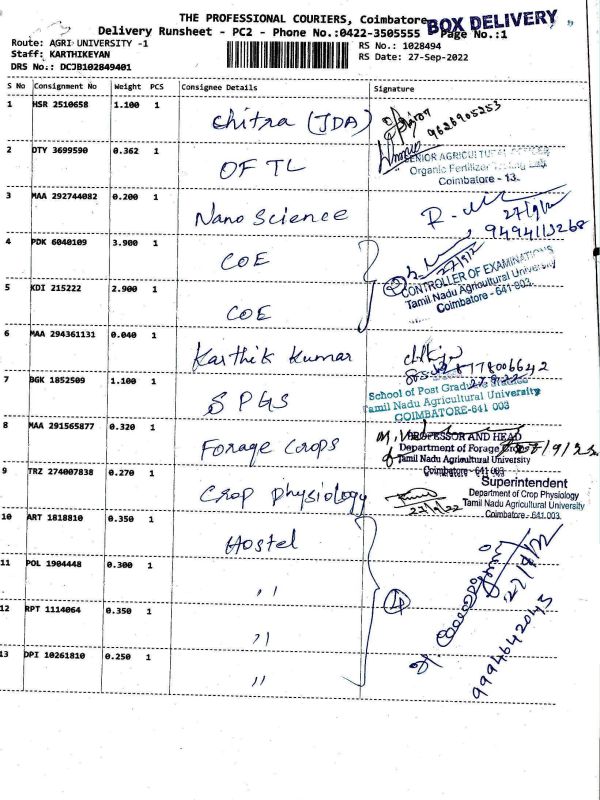 THE PROFESSIONAL COURIERS, Coimbatore
BOX DELIVERY
Delivery Runsheet - PC2 - Phone No.:0422-3505555 Page No.:1
Route: AGRI UNIVERSITY -1
RS No.: 1028494
Staff: KARTHIKEYAN
RS Date: 27-Sep-2022
DRS No.: DCJB102849401
S No Consignment No Weight PCS Consignee Details Signature
1 HSR 2510658 1.100 1 Chitra (JDA) 9626905253
2 DTY 3699590 0.362 1 OFTL
SENIOR AGRICULTURAL OFFICER
Organic Fertilizer Testing Lab
Coimbatore - 13.
3 MAA 292744082 0.200 1 Nano Science
27/9/22
9494113268
4 PDK 6040109 3.900 1 COE
27/9/22
CONTROLLER OF EXAMINATIONS
Tamil Nadu Agricultural University
Coimbatore - 641 003.
5 KDI 215222 2.900 1 COE
6 MAA 294361131 0.040 1 Karthik Kumar
8778006642
7 BGK 1852509 1.100 1 SPGS
27.9.22
School of Post Graduate Studies
Tamil Nadu Agricultural University
COIMBATORE-641 003
8 MAA 291565877 0.320 1 Forage Crops
PROFESSOR AND HEAD
Department of Forage Crops
Tamil Nadu Agricultural University
Coimbatore - 641 003.
9 TRZ 274007838 0.270 1 Crop physiology
27/9/22
Superintendent
Department of Crop Physiology
Tamil Nadu Agricultural University
Coimbatore - 641 003.
10 ART 1818810 0.350 1 Hostel
11 POL 1904448 0.300 1 ,,
4
12 RPT 1114064 0.350 1 ,,
27/9/22
9994642045
13 DPI 10261810 0.250 1 ,,